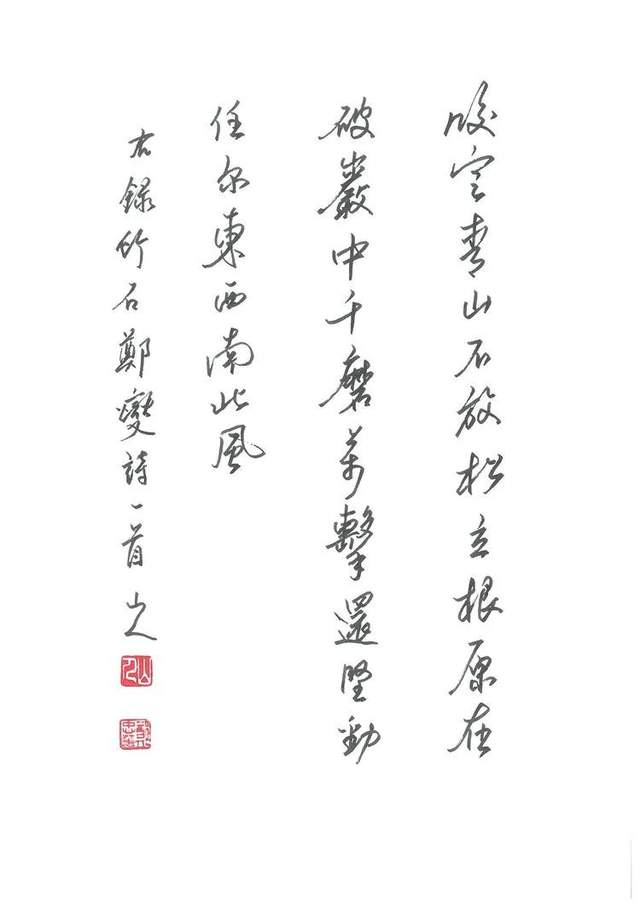 咬定青山不放松立根原在
破巖中千磨萬擊還堅勁
任尔東西南北風
右録竹石鄭燮詩一首 山人